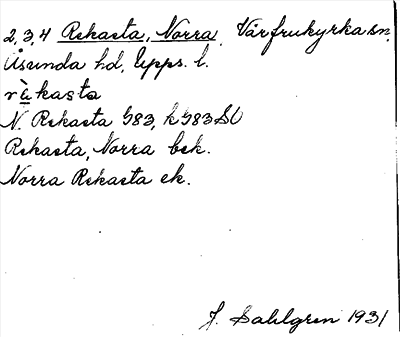 2,3,4 Rekasta, Norra, Vårfrukyrka sn,
Åsunda hd, Upps. l.
N. Rekasta 983, k 983 SO
Rekasta, Norra bek.
Norra Rekasta ek.
J. Sahlgren 1931